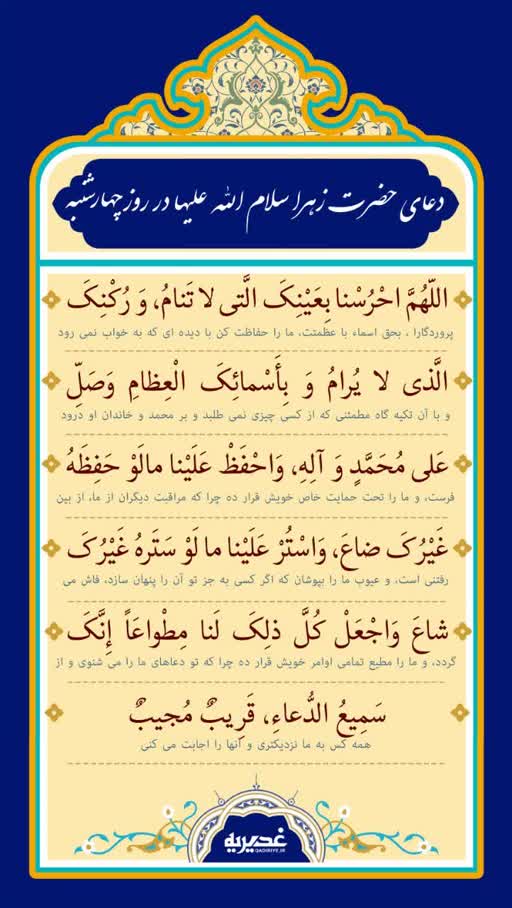 دعای حضرت زهرا سلام الله علیها در روز چهارشنبه
اللّهُمَّ احْرُسْنا بِعَیْنِکَ الَّتی لا تَنامُ، وَ رُکْنِکَ
پروردگارا ، بحق اسماء با عظمتت، ما را حفاظت کن با دیده ای که به خواب نمی رود
الَّذی لا یُرامُ وَ بِأَسْمائِکَ الْعِظامِ وَصَلِّ
و با آن تکیه گاه مطمئنی که از کسی چیزی نمی طلبد و بر محمد و خاندان او درود
عَلی مُحَمَّدٍ وَ آلِهِ، وَاحْفَظْ عَلَیْنا مالَوْ حَفِظَهُ
فرست، و ما را تحت حمایت خاص خویش قرار ده چرا که مراقبت دیگران از ما، از بین
غَیْرُکَ ضاعَ، وَاسْتُرْ عَلَیْنا ما لَوْ سَتَرَهُ غَیْرُکَ
رفتنی است، و عیوب ما را بپوشان که اگر کسی به جز تو آن را پنهان سازد، فاش می
شاعَ وَاجْعَلْ کُلَّ ذلِکَ لَنا مِطْواعَاً إِنَّکَ
گردد، و ما را مطیع تمامی اوامر خویش قرار ده چرا که تو دعاهای ما را می شنوی و از
سَمِیعُ الدُّعاءِ، قَرِیبٌ مُجیبٌ
همه کس به ما نزدیکتری و آنها را اجابت می کنی
غدیریه
QADIRIYE.IR